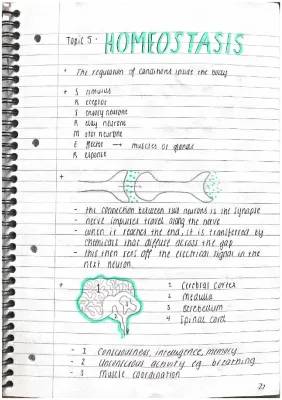 Topic 5 - HOMEOSTASIS
The regulation of conditions inside the body
S stimulus
R receptor
S ensory neurone
R elay neurone
M otor neurone
E ffector → muscles or glands
R esponse
- the connection between two neurons is the synapse
- nerve impulses travel along the nerve
- when it reaches the end, it is transferred by
chemicals that diffuse across the gap
- this then sets off the electrical signal in the
next neuron.
1 Cerebral Cortex
2 Medulla
3 Cerebellum
4 Spinal cord
- 1 Consciousness, intelligence, memory
- 2 Unconscious activity eg. breathing
- 3 Muscle coordination